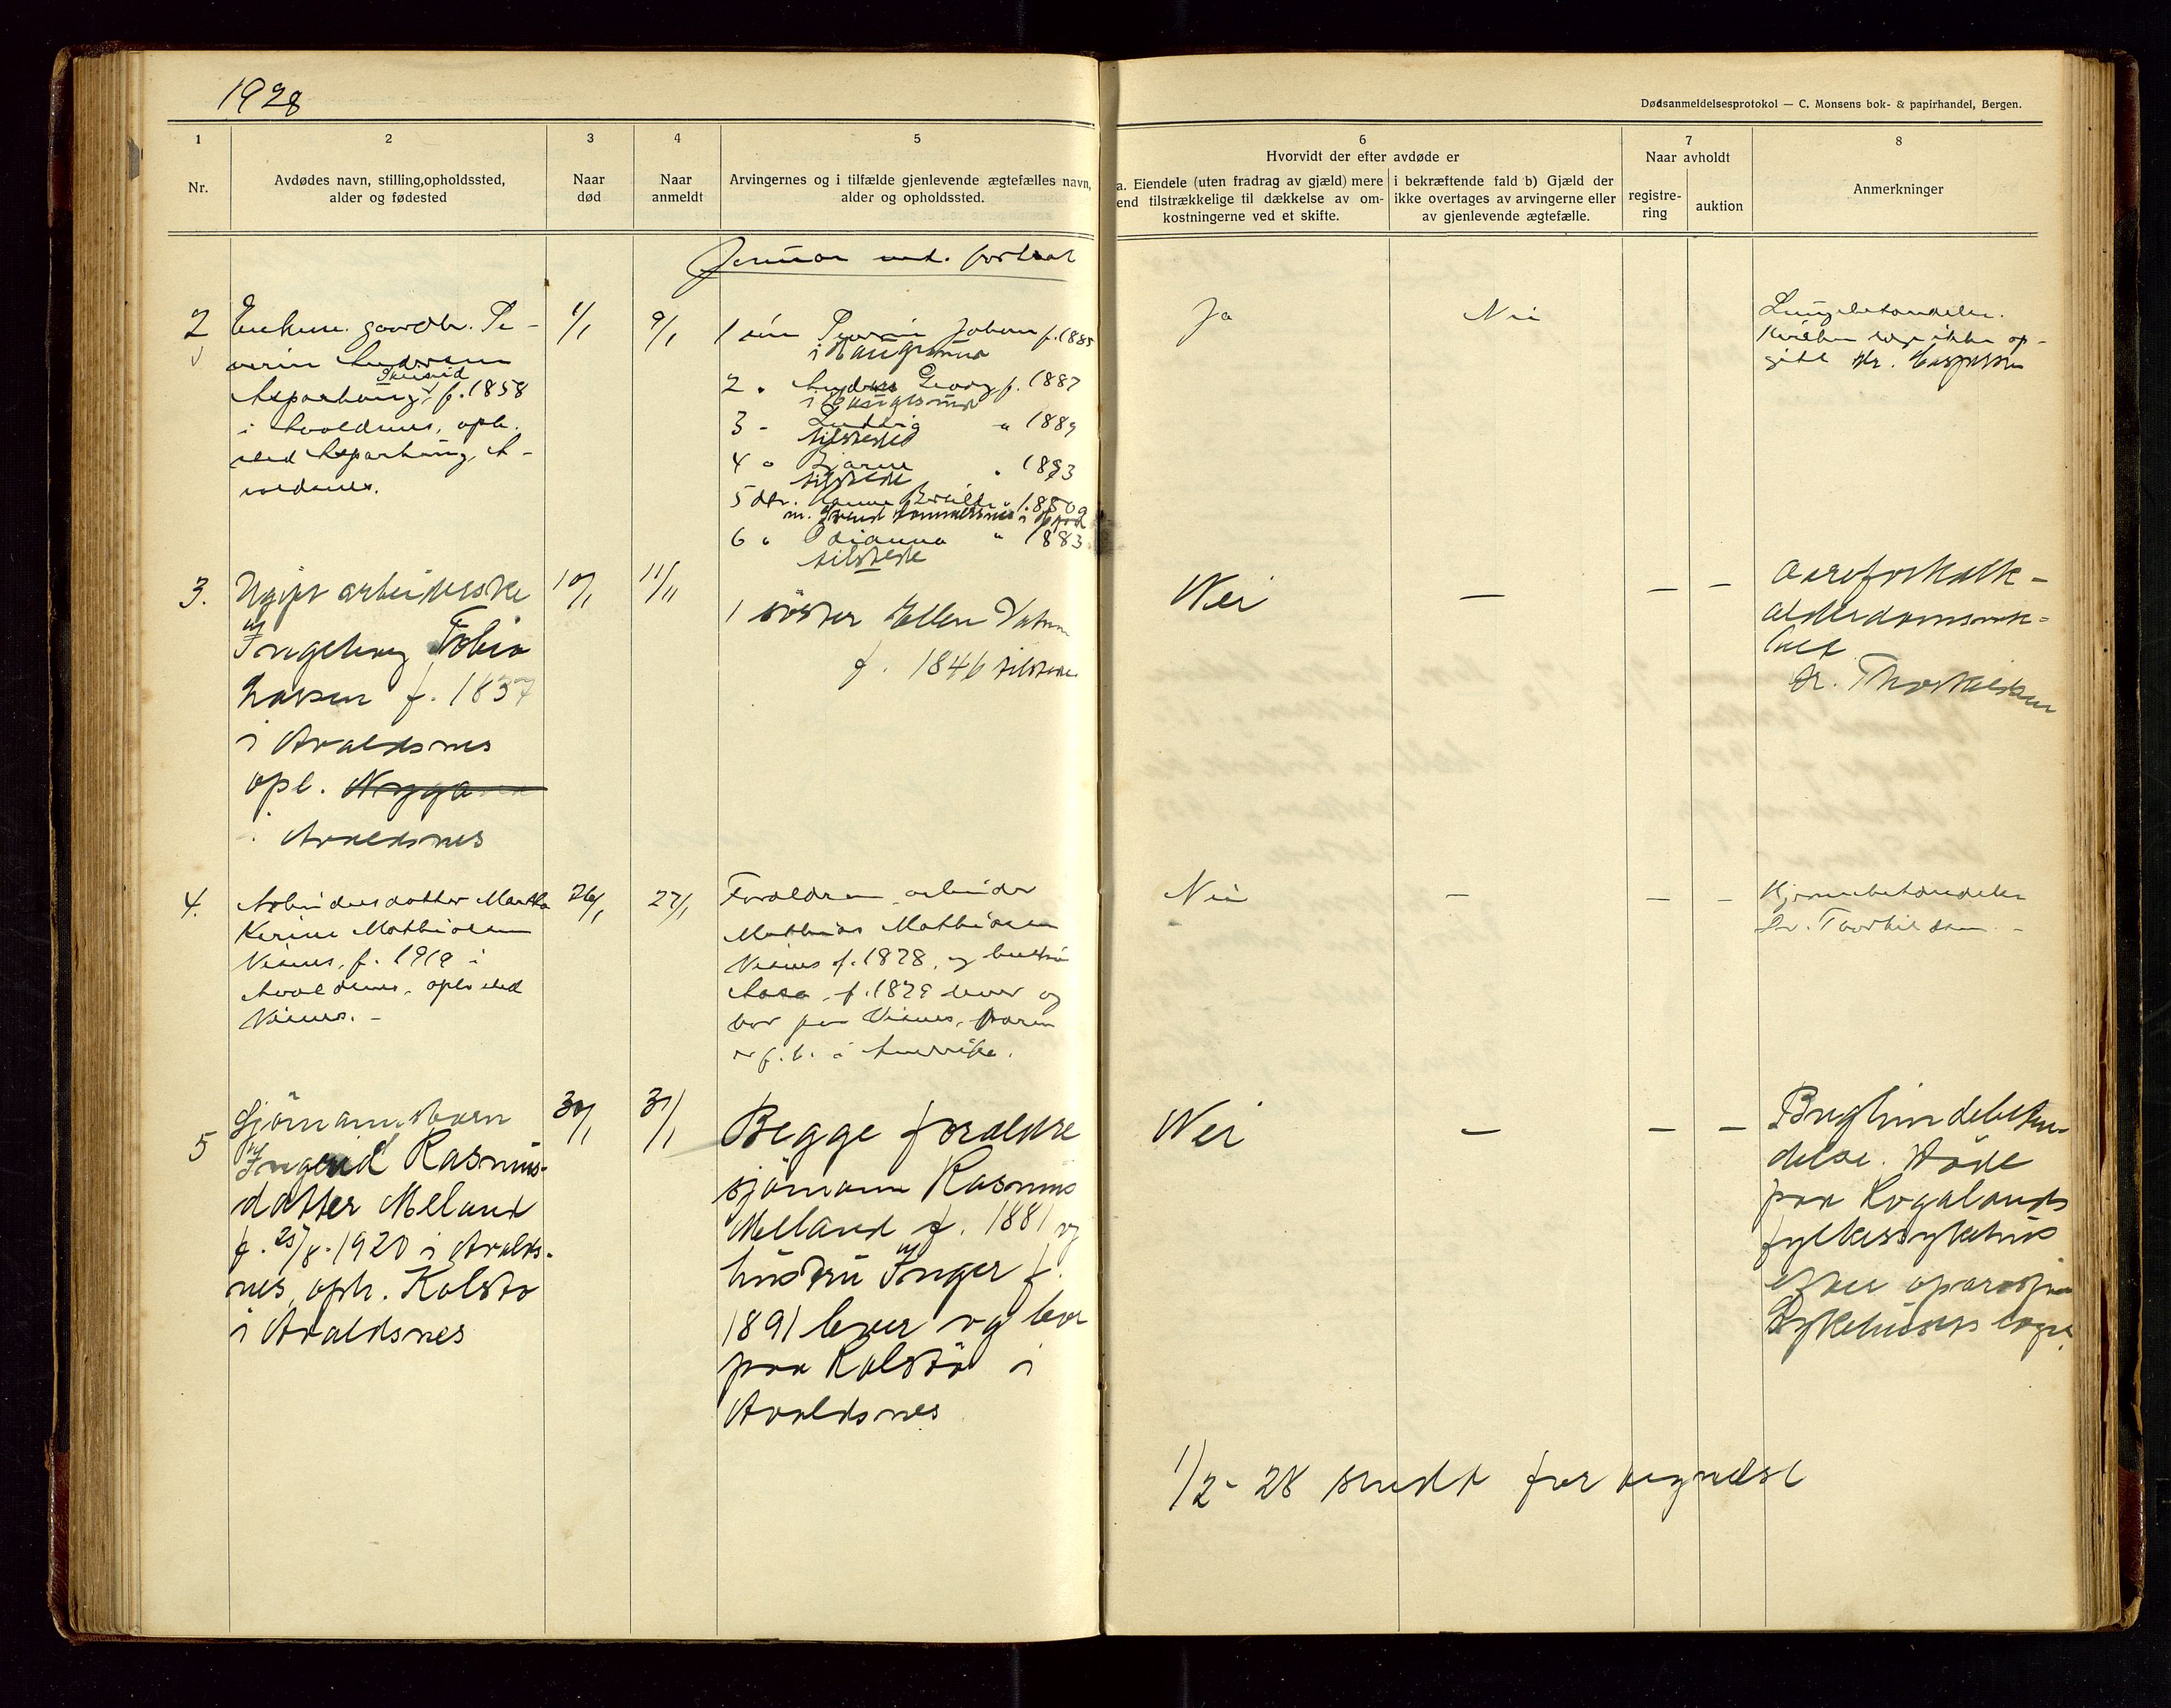 1928
Dødsanmeldelsesprotokol — C. Monsens bok- & papirhandel, Bergen.
1 2 3 4 5 6 7 8
Nr.
Avdødes navn, stilling,opholdssted,
alder og fødested
Naar
død
Naar
anmeldt
Arvingernes og i tilfælde gjenlevende ægtefælles navn,
alder og opholdssted.
Hvorvidt der efter avdøde er
a. Eiendele (uten fradrag av gjæld) mere
end tilstrækkelige til dækkelse av om-
kostningerne ved et skifte.
i bekræftende fald b) Gjæld der
ikke overtages av arvingerne eller
av gjenlevende ægtefælle.
Naar avholdt
registre-
ring
auktion
Anmerkninger
Januar md. fortsat
2
Enkem. gaardbr. Se-
verin
Asparhaug, f. 1858
i Avaldsnes, oph.
sted Asparhaug, A-
valdsnes.
1/1
9/1
1 søn Severin Johan f. 1885
i Haugesund
2 " Georg f. 1887
i Haugesund
3 - Ludvig " 1889
tilstede
4 " Bjarne " 1893
tilstede
5 dtr.
6 " " 1883
tilstede
Ja
Nei
Lungebetændelse.
3.
Ugift arbeiderske
Ingeborg Tobia
Larsen f. 1837
i Avaldsnes
opl. Nygaard
i Avaldsnes
10/1
11/1
1 søster Ellen
f. 1846 tilstede
Nei
—
—
—
Aareforkalk-
alderdomsvak-
het
Dr. Thorkildsen
4.
Arbeidersdatter Martha
Karine Mathiasen
Visnes, f. 1919 i
Avaldsnes, oph. sted
Visnes. -
26/1
27/1
Forældrene, arbeider
Mathias Mathiasen
Visnes f. 1878, og hustru
Aasa, f. 1879 lever og
bor paa Visnes,
i Amerika.
Nei
—
—
—
Hjernebetændelse
Dr. Torkildsen -
5
Sjømannsbarn
Ingerid Rasmus-
datter Meland
f. 25/8. 1920 i Avalds-
nes, oph. Kolstø
i Avaldsnes
30/1
31/1
Begge forældre
sjømann Rasmus
Melland f. 1881 og
hustru Inger f.
1891 lever og bor
paa Kolstø i
Avaldsnes
Nei
—
—
—
Bughindebetæn-
delse. Døde
paa Rogalands
fylkessykehus
efter operasjon
Sykehusets læge.
1/2 - 28 sendt fortegnelse